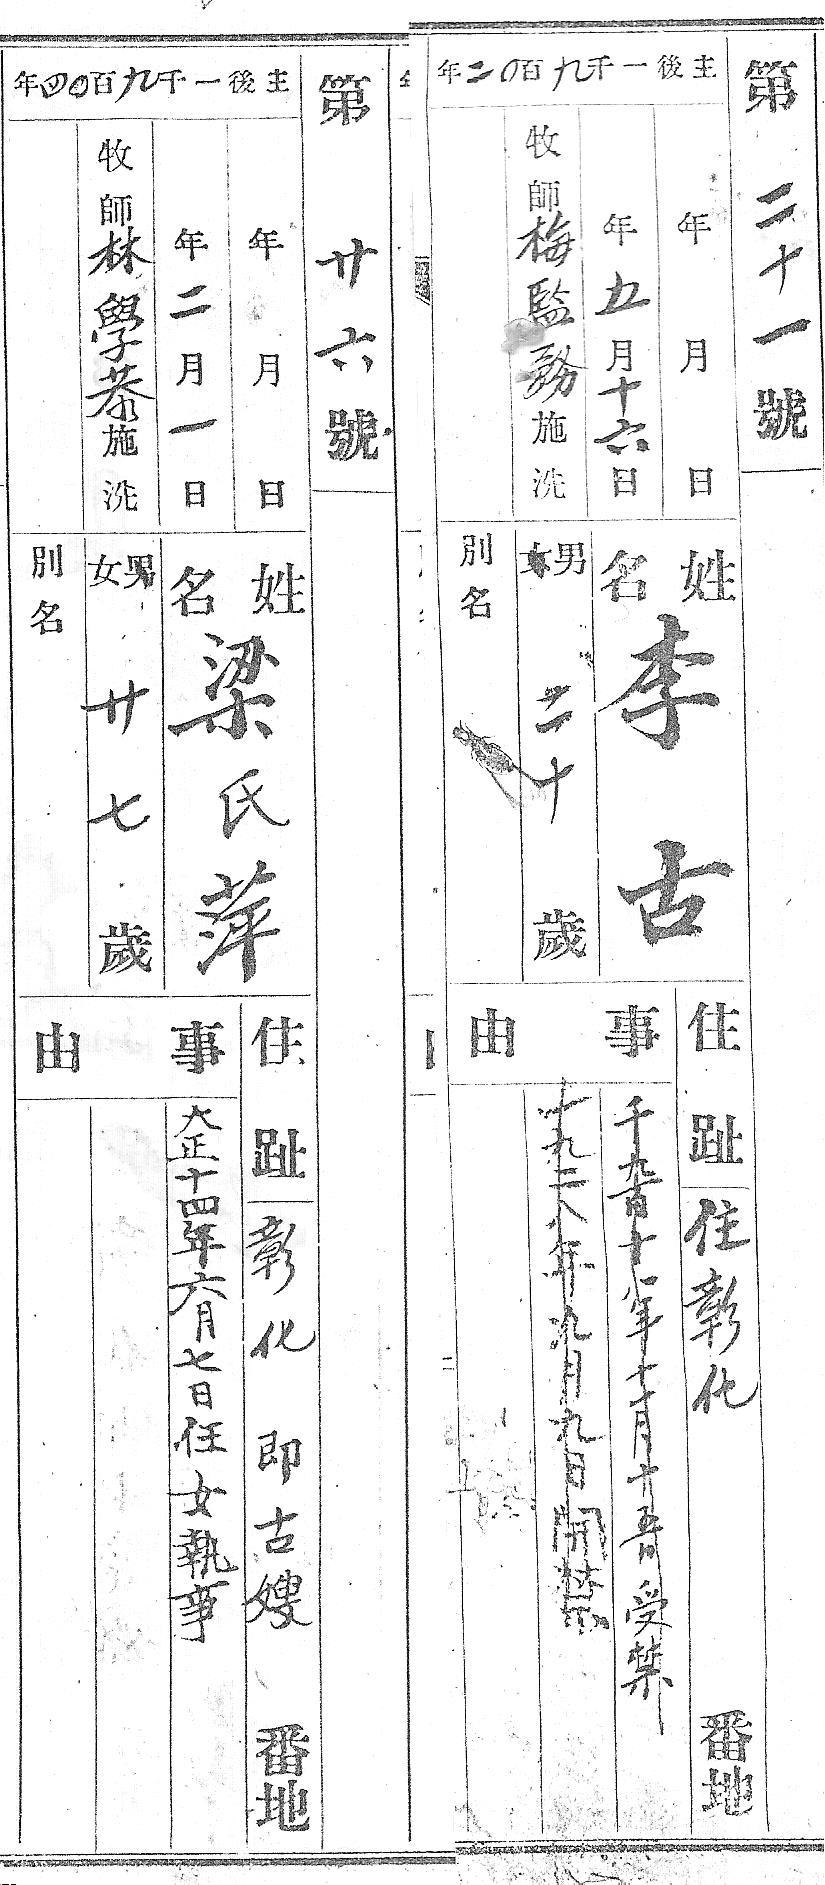 第二十一號
主後一千九百〇二年
年 月 日
年五月十六日
牧師梅監務施洗
姓名 李古
男女 二十歲
別名
住趾 住彰化 番地
事由
千九百十八年十一月十五日受禁
一九二八年九月九日開禁
第廿六號
主後一千九百〇四年
年 月 日
年二月一日
牧師林學恭施洗
姓名 梁氏萍
男女 廿七歲
別名
住趾 彰化 即古嫂 番地
事由
大正十四年六月七日任女執事